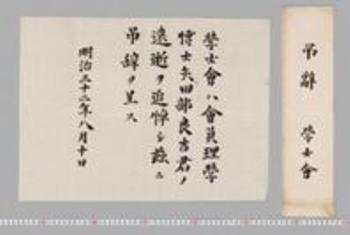 學士會ハ會員理學
博士矢田部良吉君ノ
遠逝ヲ追悼シ茲ニ
吊辭ヲ呈ス
明治三十二年八月十日
吊辭
學士會